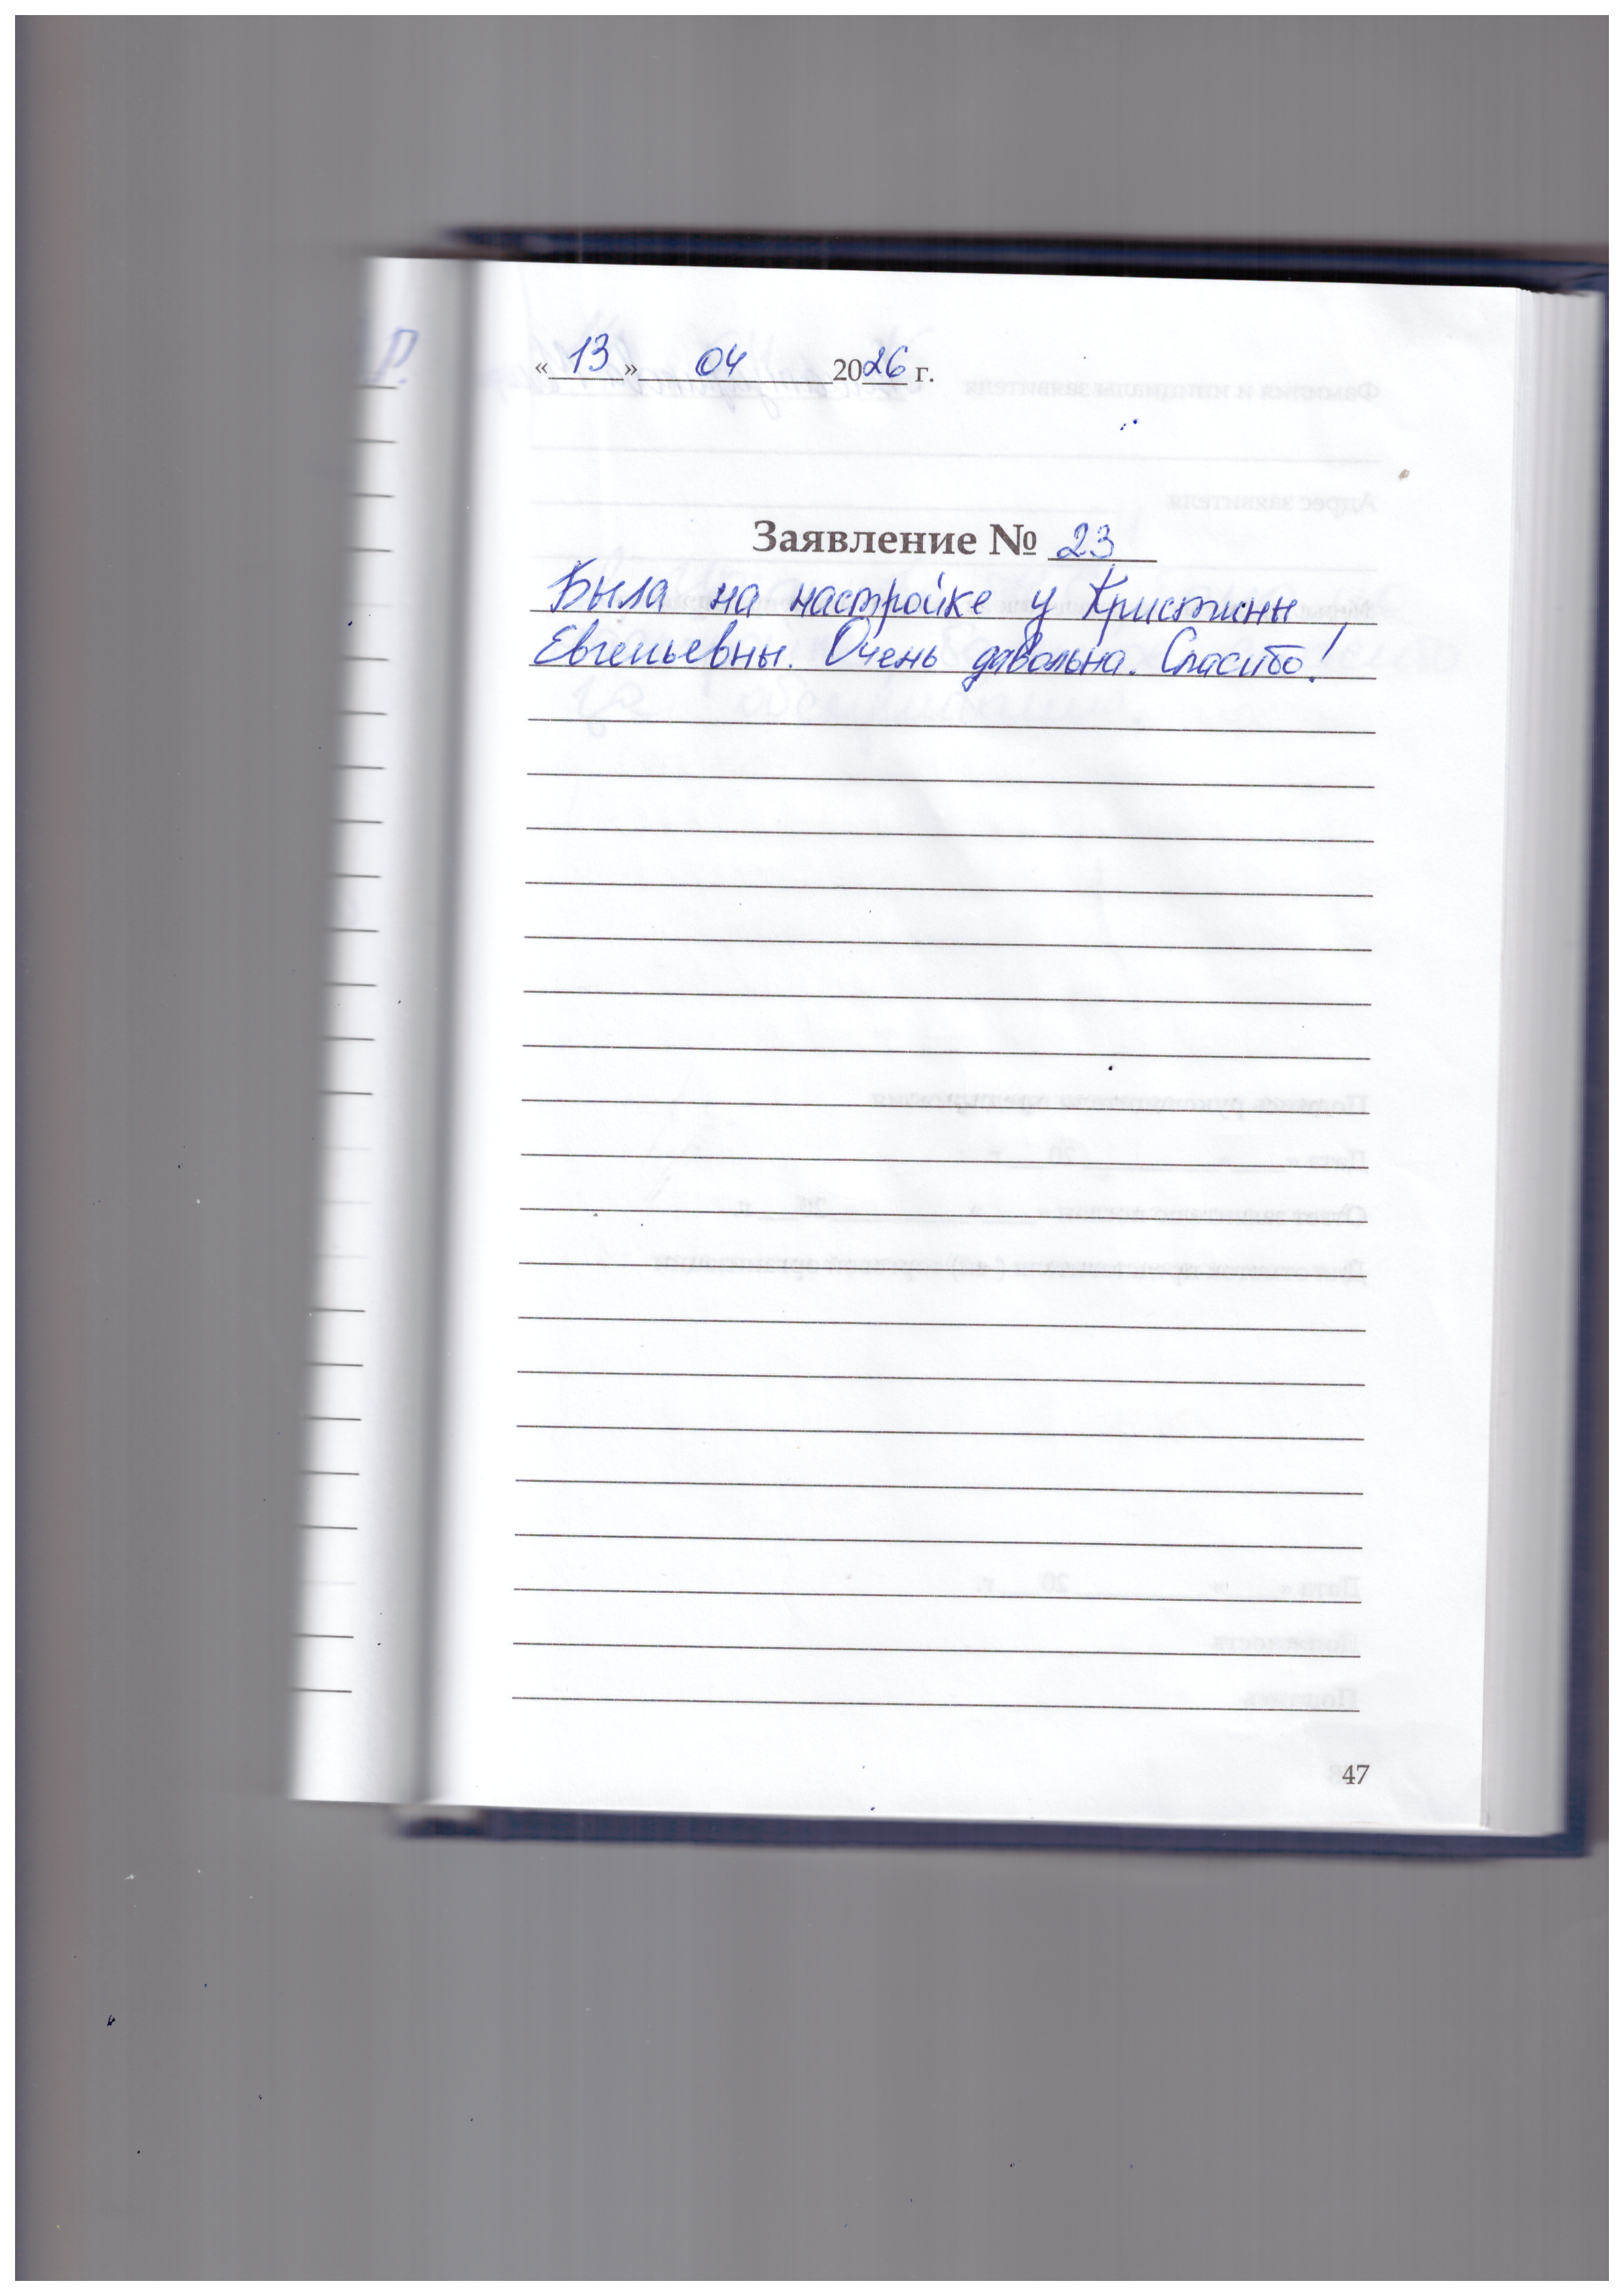 «13» 04 2026 г.
Заявление № 23
Была на настройке у Кристины
Евгеньевны. Очень давольна. Спасибо!
47